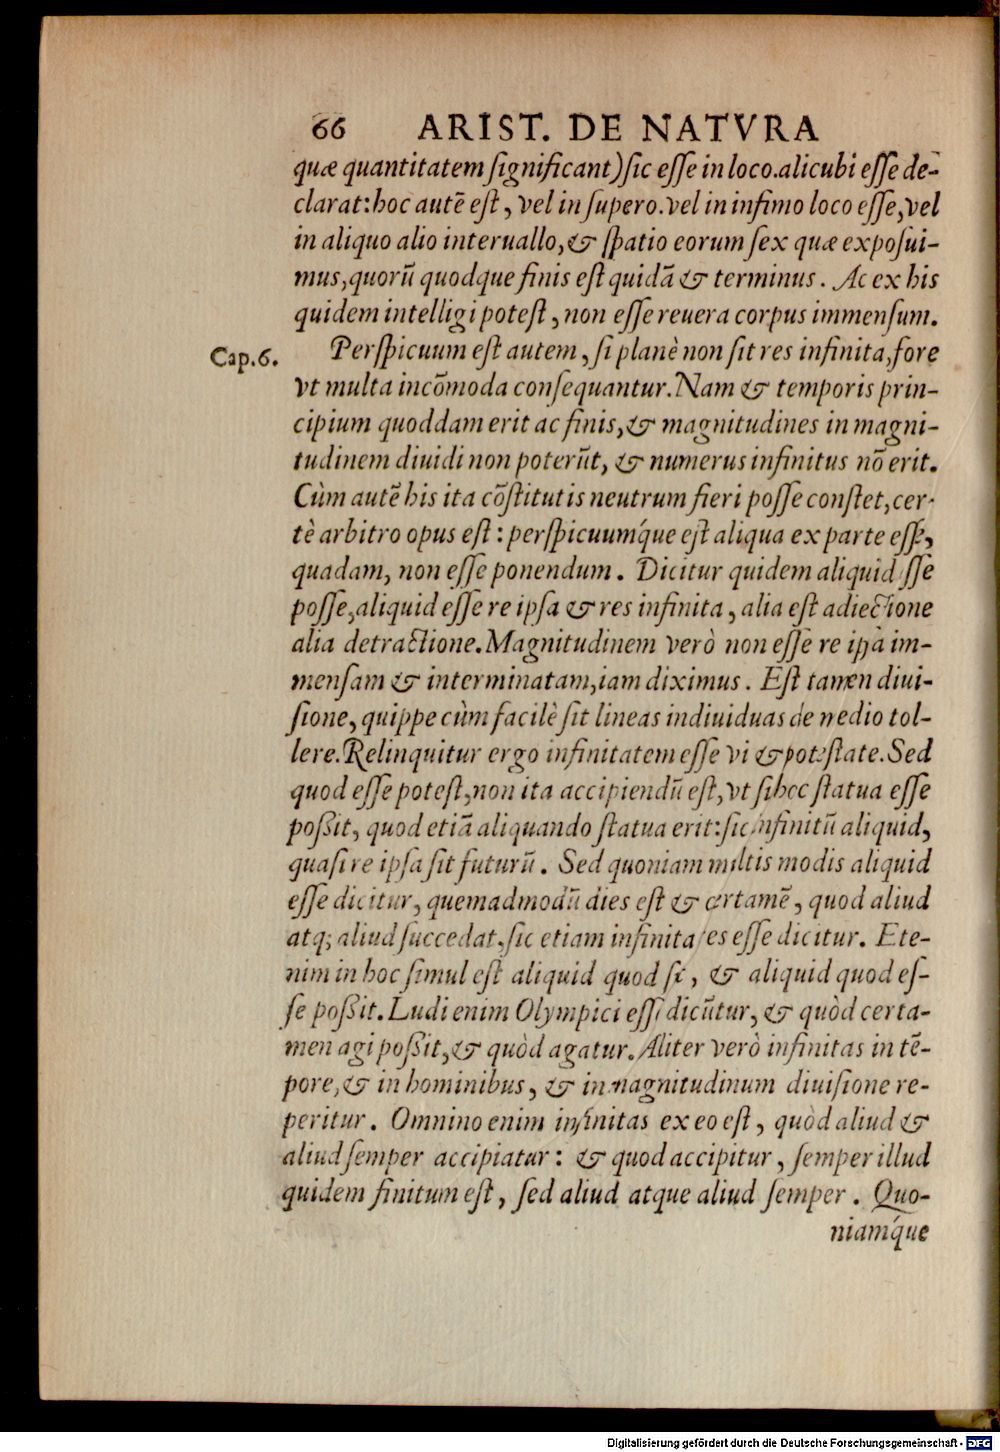 66 ARIST. DE NATVRA
quæ quantitatem ſignificant) ſic eſſe in loco. alicubi eſſe de-
clarat: hoc autē eſt, vel in ſupero. vel in infimo loco eſſe, vel
in aliquo alio interuallo, & ſpatio eorum ſex quæ expoſui-
mus, quorū quodque finis eſt quidā & terminus. Ac ex his
quidem intelligi poteſt, non eſſe reuera corpus immenſum.
Cap.6. Perſpicuum eſt autem, ſi planè non ſit res infinita, fore
vt multa incōmoda conſequantur. Nam & temporis prin-
cipium quoddam erit ac finis, & magnitudines in magni-
tudinem diuidi non poterūt, & numerus infinitus nō erit.
Cùm autē his ita cōſtitutis neutrum fieri poſſe conſtet, cer-
tè arbitro opus eſt: perſpicuumq́ue eſt aliqua ex parte eſſe,
quadam, non eſſe ponendum. Dicitur quidem aliquid ſſe
poſſe, aliquid eſſe re ipſa & res infinita, alia eſt adiectione
alia detractione. Magnitudinem verò non eſſe re ipſa im-
menſam & interminatam, iam diximus. Eſt tamen diui-
ſione, quippe cùm facilè ſit lineas indiuiduas de medio tol-
lere. Relinquitur ergo infinitatem eſſe vi & poteſtate. Sed
quod eſſe poteſt, non ita accipiendū eſt, vt ſi hoc ſtatua eſſe
poßit, quod etiā aliquando ſtatua erit: ſic infinitū aliquid,
quaſi re ipſa ſit futurū. Sed quoniam multis modis aliquid
eſſe dicitur, quemadmodū dies eſt & certamē, quod aliud
atq; aliud ſuccedat, ſic etiam infinita res eſſe dicitur. Ete-
nim in hoc ſimul eſt aliquid quod ſit, & aliquid quod eſ-
ſe poßit. Ludi enim Olympici eſſe dicūtur, & quòd certa-
men agi poßit, & quòd agatur. Aliter verò infinitas in tē-
pore, & in hominibus, & in magnitudinum diuiſione re-
peritur. Omnino enim infinitas ex eo eſt, quòd aliud &
aliud ſemper accipiatur: & quod accipitur, ſemper illud
quidem finitum eſt, ſed aliud atque aliud ſemper. Quo-
niamq́ue
Digitalisierung gefördert durch die Deutsche Forschungsgemeinschaft - DFG